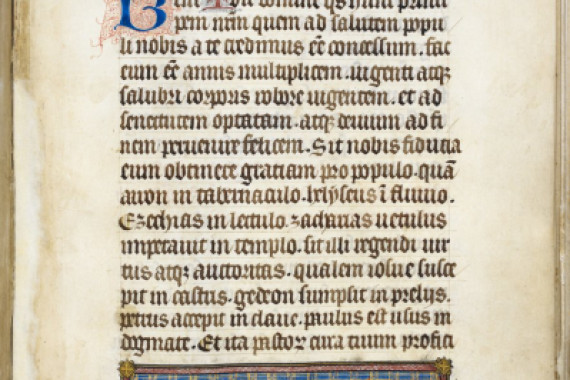 B dñe hunc princi
pem nr̃m quem ad salutem popu
li nobis a te credimus eẽ concessum. fac
eum eẽ annis multiplicem. uigenti atqꝫ
salubri corporis robore uigentem. et ad
senectutem optatam. atqꝫ demum ad fi
nem peruenire felicem. Sit nobis fiducia
eum obtinere gratiam pro populo. quã
aaron in tabernaculo. helyseus ĩ fluuio.
Ezechias in lectulo. zacharias uetulus
impetrauit in templo. sit illi regendi uir
tus atqꝫ auctoritas. qualem iosue susce
pit in castris. gedeon sumpsit in prelijs.
petrus accepit in claue. paulus est usus in
dogmate. Et ita pastor cura tuum profici